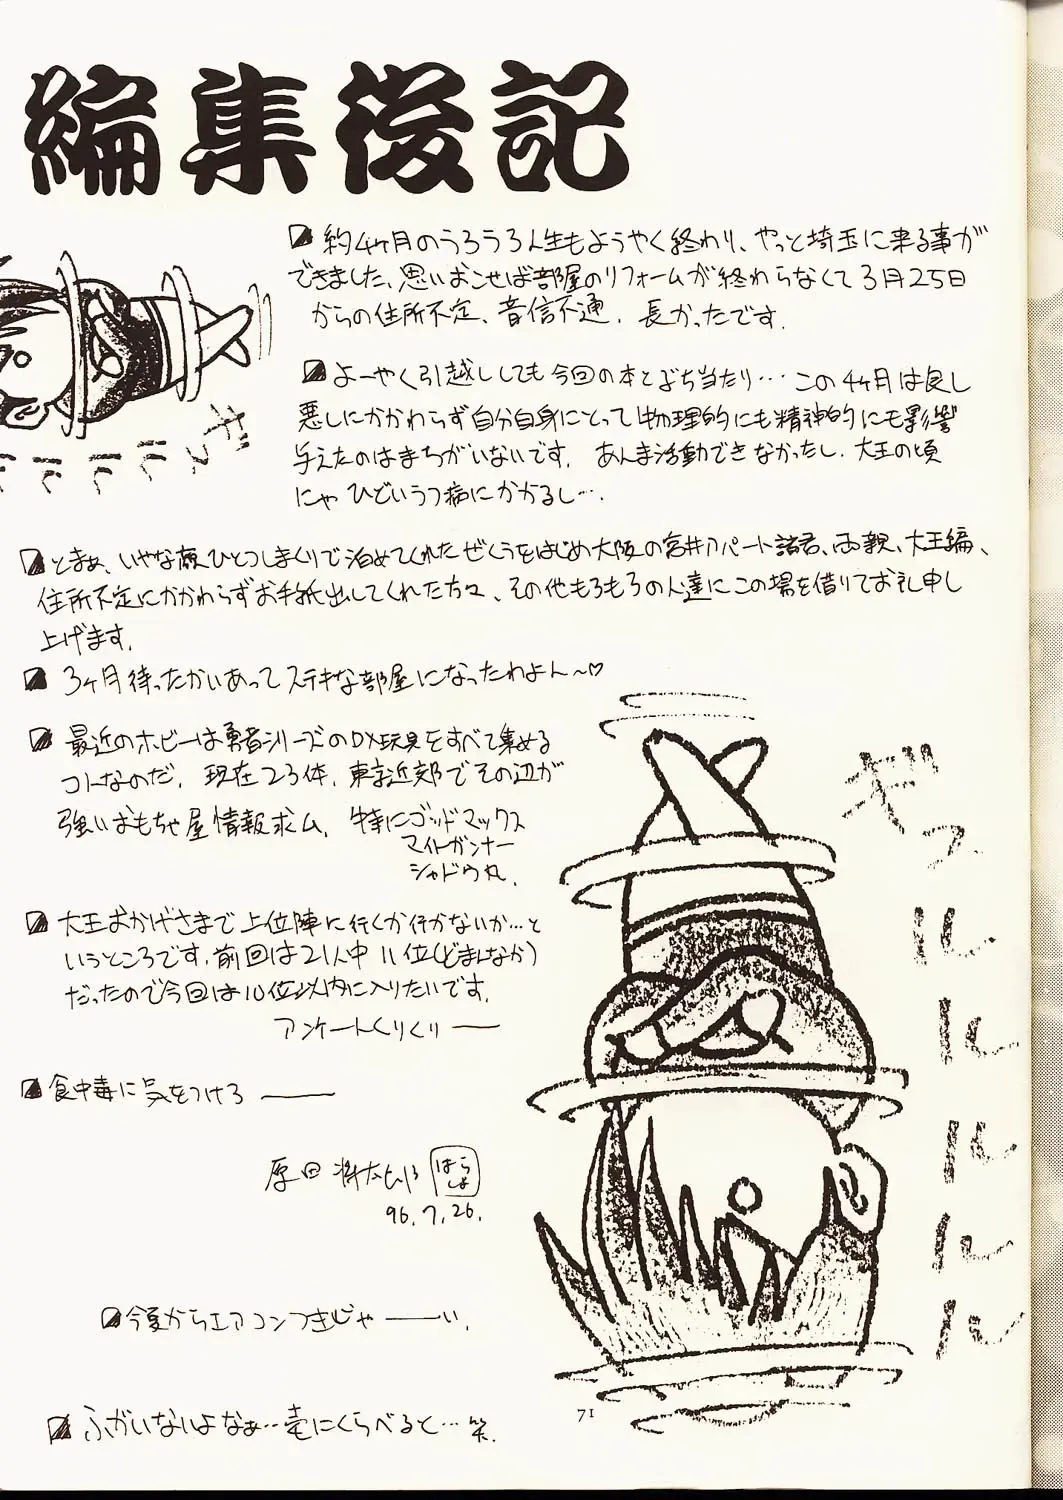 編集後記
約4ヶ月のうろうろ人生もようやく終わり、やっと埼玉に来る事が
できました、思いおこせば部屋のリフォームが終わらなくて3月25日
からの住所不定、音信不通、長かったです.
よーやく引越ししても今回の本とぶち当たり… この4ヶ月は良し
悪しにかかわらず自分自身にとって物理的にも精神的にも影響
与えたのはまちがいないです. あんま活動できなかったし. 大王の頃
にゃ ひどいうつ病にかかるし….
とまぁ、いやな顔ひとつしまくりで泊めてくれたぜくうをはじめ大阪の宮井アパート諸君、両親、大王編、
住所不定にかかわらずお手紙出してくれた方々、その他もろもろの人達にこの場を借りてお礼申し
上げます.
3ヶ月待ったかいあってステキな部屋になったわよん〜♡
最近のホビーは勇者シリーズのDX玩具をすべて集める
コトなのだ. 現在23体. 東京近郊でその辺が
強いおもちゃ屋情報求ム. 特にゴッドマックス
マイトガンナー
シャドウ丸.
大王おかげさまで上位陣に行くか行かないか…と
いうところです.前回は21人中 11位(どまんなか)
だったので今回は10位以内に入りたいです.
アンケートくりくりー
食中毒に気をつけろー
原田将太郎 はらしょ
96.7.26.
今夏からエアコンつきじゃーい.
ふがいないよなぁ…竜にくらべると… 笑.
ギュルルルルル
71